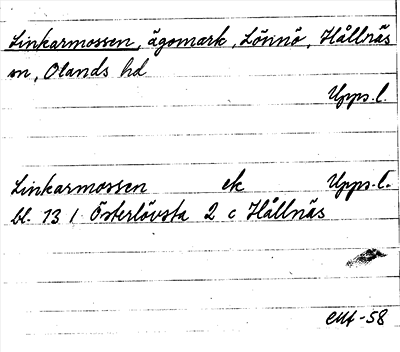 Linkarmossen, ägomark, Lönnö, Hållnäs
sn, Olands hd
Upps. l.
Linkarmossen ek Upps. l.
bl. 13 I Österlövsta 2 c Hållnäs
-58